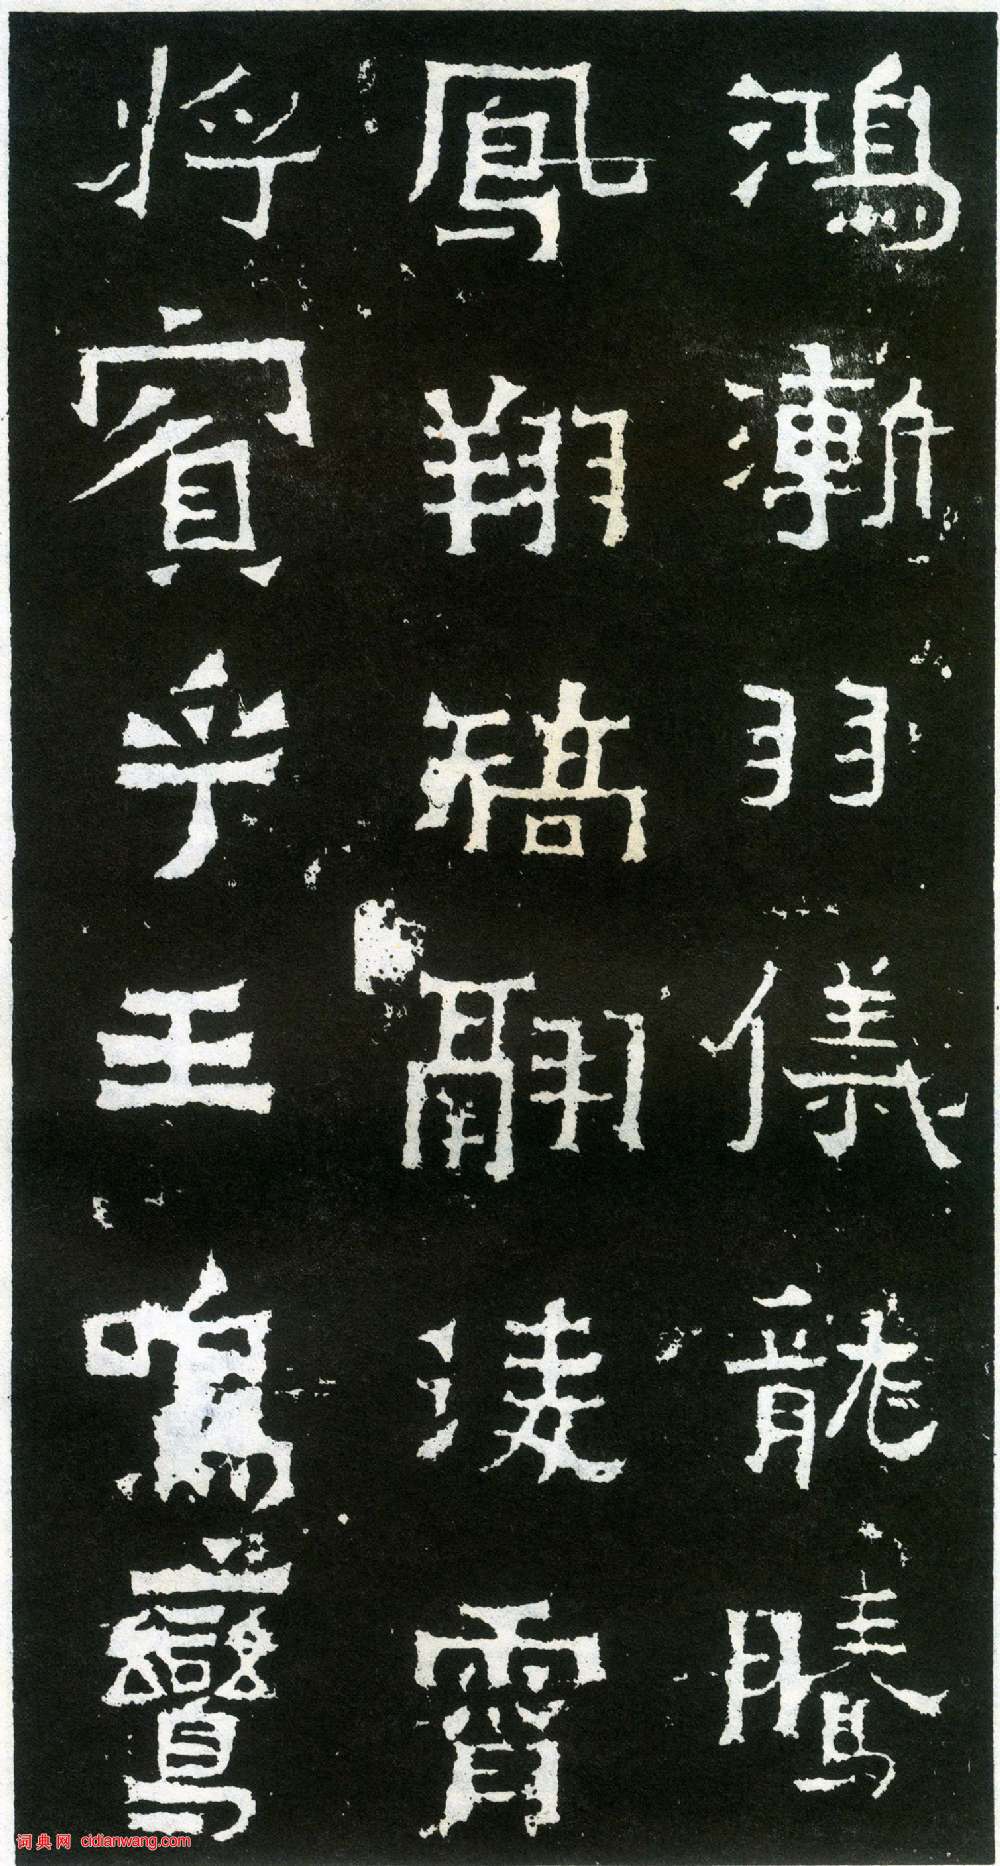 鴻漸羽儀龍騰
鳳翔矯翮淩霄
將賓乎王鳴鸞
词典网 cidianwang.com